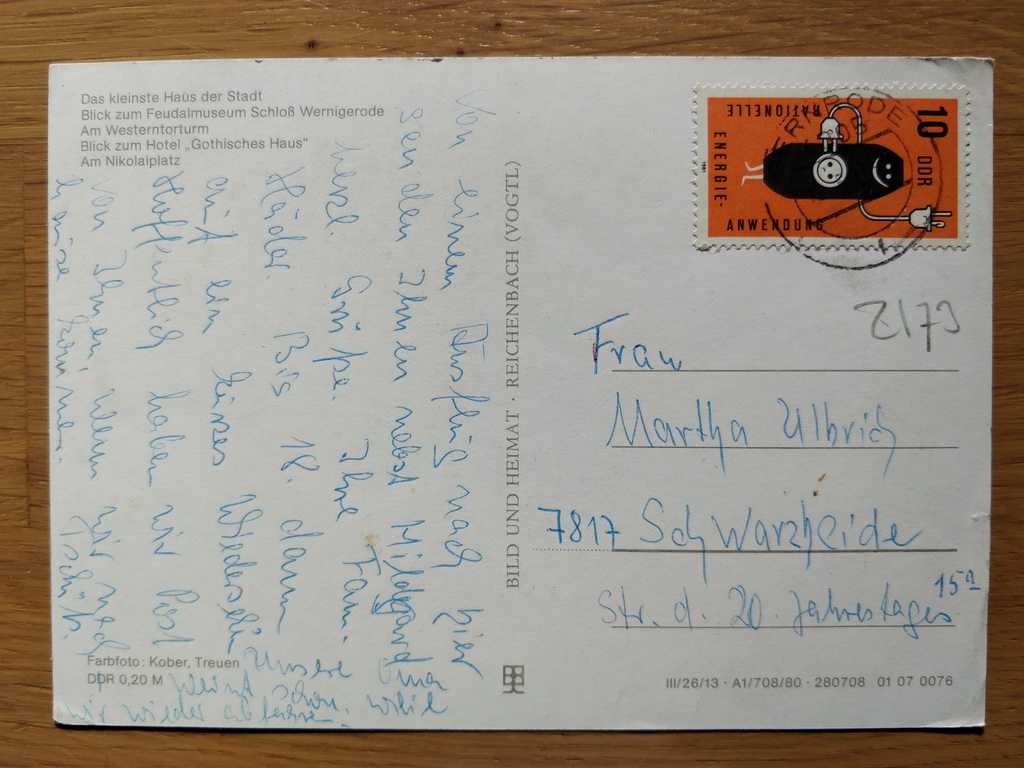 Das kleinste Haus der Stadt
Blick zum Feudalmuseum Schloß Wernigerode
Am Westerntorturm
Blick zum Hotel „Gothisches Haus"
Am Nikolaiplatz
Von einem Ausflug nach hier
senden Ihnen nebst Hildgard
herzl. Grüße. Ihre Fam.
Häder. Bis 18. dann
auf ein kurzes Wiedersehn
Hoffentlich haben wir Post
von Ihnen, wenn wir nach
hause kommen. Tschüß.
Unsere
weint schon, weil
wir wieder abfahren.
Farbfoto: Kober, Treuen
DDR 0,20 M
BILD UND HEIMAT · REICHENBACH (VOGTL)
RATIONELLE
ENERGIE-
ANWENDUNG
10
DDR
1981
Z173
Frau
Martha Ulbrich
7817 Schwarzheide
Str. d. 20. Jahrestages
15a
III/26/13 · A1/708/80 · 280708 01 07 0076